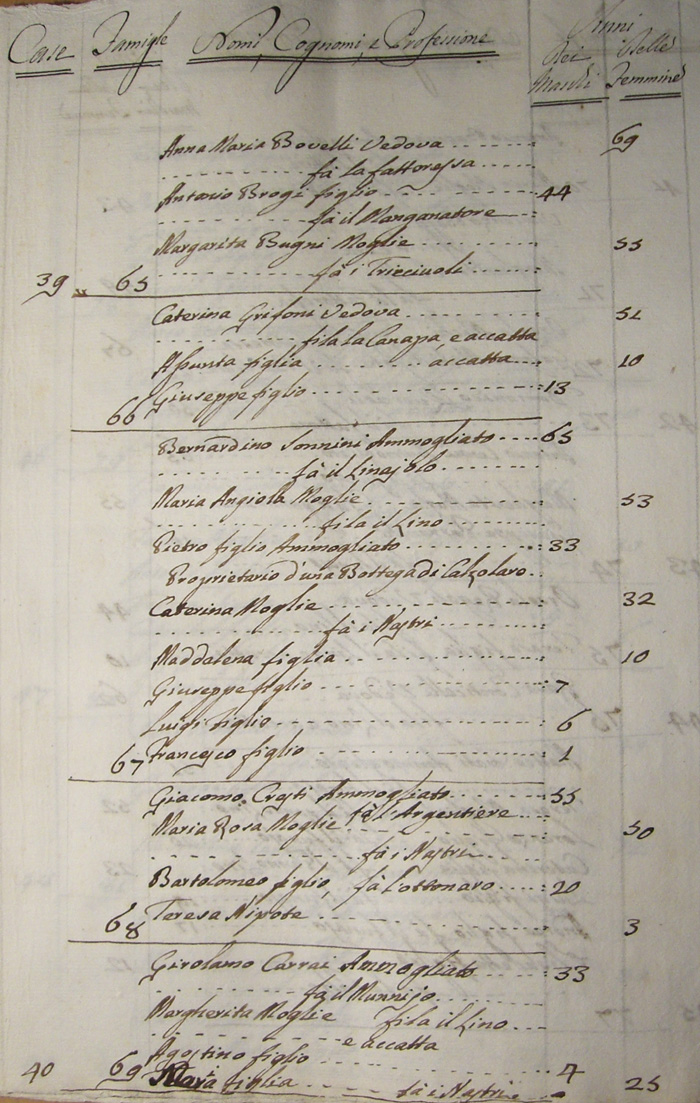 Anni
Case Famiglie Nomi, Cognomi, e Professione dei Maschi delle Femmine
Anna Maria Bovelli Vedova 69
fà la fattoressa
Antonio Brogi figlio 44
fà il Manganatore
Margarita Bugni Moglie 55
39 65 fà i Triccivoli
Caterina Grifoni Vedova 51
fila la Canapa, e accatta
Assunta figlia accatta 10
66 Giuseppe figlio 13
Bernardino Sonnini Ammogliato 65
fà il Linajolo
Maria Angiola Moglie 53
fila il Lino
Pietro figlio Ammogliato 33
Proprietario d'una Bottega di Calzolaro
Caterina Moglie 32
fà i Nastri
Maddalena figlia 10
Giuseppe figlio 7
Luigi figlio 6
67 Francesco figlio 1
Giacomo Cresti Ammogliato 55
fà l'Argentiere
Maria Rosa Moglie 50
fà i Nastri
Bartolomeo figlio, fà l'ottonaro 20
68 Teresa Nipote 3
Girolamo Carrai Ammogliato 33
fà il Nunnijo
Margherita Moglie fila il Lino
e accatta
Agostino figlio 4
40 69 Maria figlia fà i Nastri 25